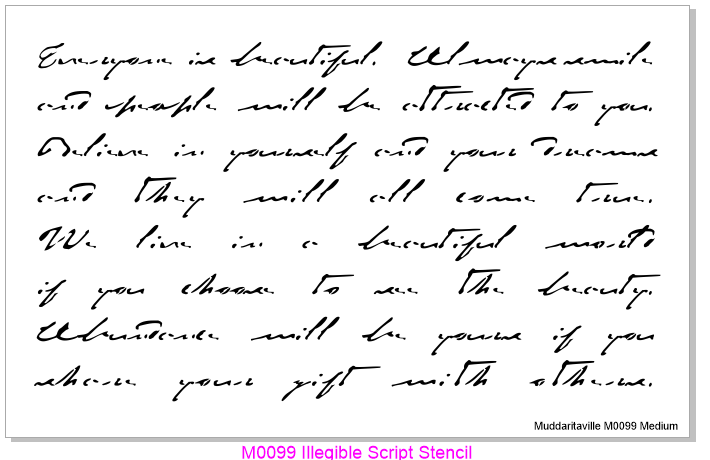 Everyone is beautiful. Always smile
and people will be attracted to you.
Believe in yourself and your dreams
and they will all come true.
We live in a beautiful world
if you choose to see the beauty.
Abundance will be yours if you
share your gift with others.
Muddaritaville M0099 Medium
M0099 Illegible Script Stencil